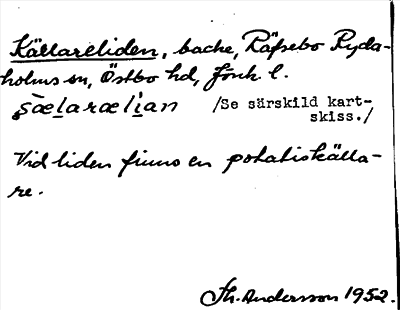 Källareliden, backe, Räfsebo Ryda-
holms sn, Östbo hd, Jönk. l.
şælarælian /Se särskild kart-
skiss./
Vid liden finns en potatiskälla-
re.
Th. Andersson 1952.